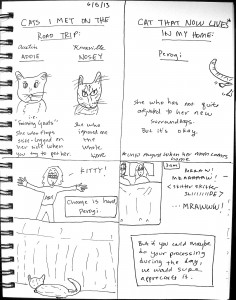 6/5/13
CATS I MET ON THE
ROAD TRIP:
Austin
ADDIE
Knoxville
NOSEY
i.e.
"Fainting Goats"
she who flops
side-legged on
her butt when
you try to pet her.
she who
ignored me
the
whole
time
CAT THAT NOW LIVES*
IN MY HOME:
Perogi
she who has not quite
adjusted to her new
surroundings.
But it's okay.
*until August when her mom comes
home
KITTY!
Change is hard,
Perogi.
3am
MRRAW!
MRRAAAAAW!
<skitter skitter
SLIIIIIIDE>
...MRAWWW!
But if you could maybe
do your processing
during the day,
we would super
appreciate it.